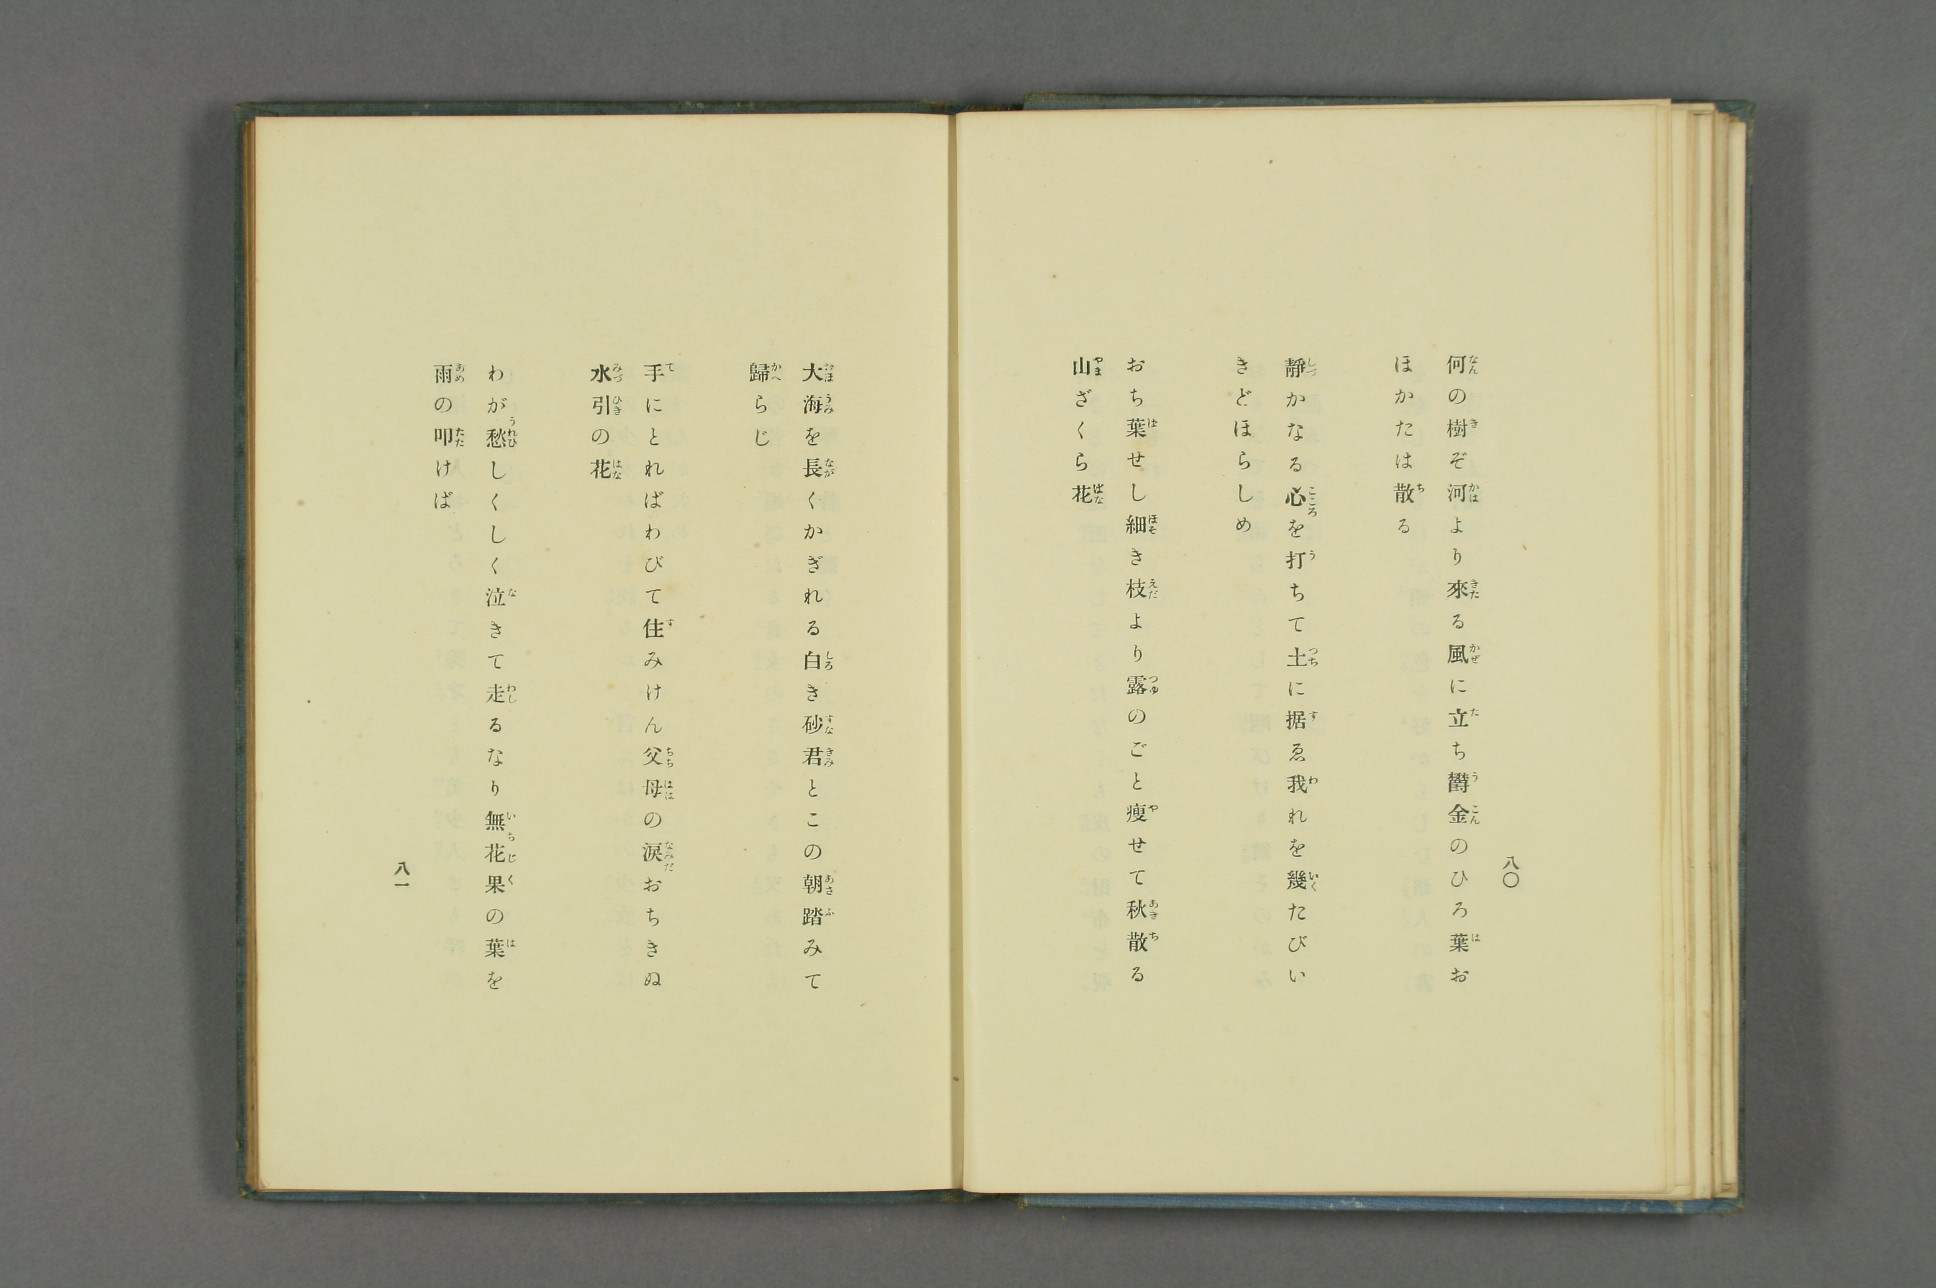 八〇
何の樹ぞ河より來る風に立ち欝金のひろ葉お
ほかたは散る
靜かなる心を打ちて土に据ゑ我れを幾たびい
きどほらしめ
おち葉せし細き枝より露のごと瘦せて秋散る
山ざくら花
大海を長くかぎれる白き砂君とこの朝踏みて
歸らじ
手にとればわびて住みけん父母の涙おちきぬ
水引の花
わが愁しくしく泣きて走るなり無花果の葉を
雨の叩けば
八一